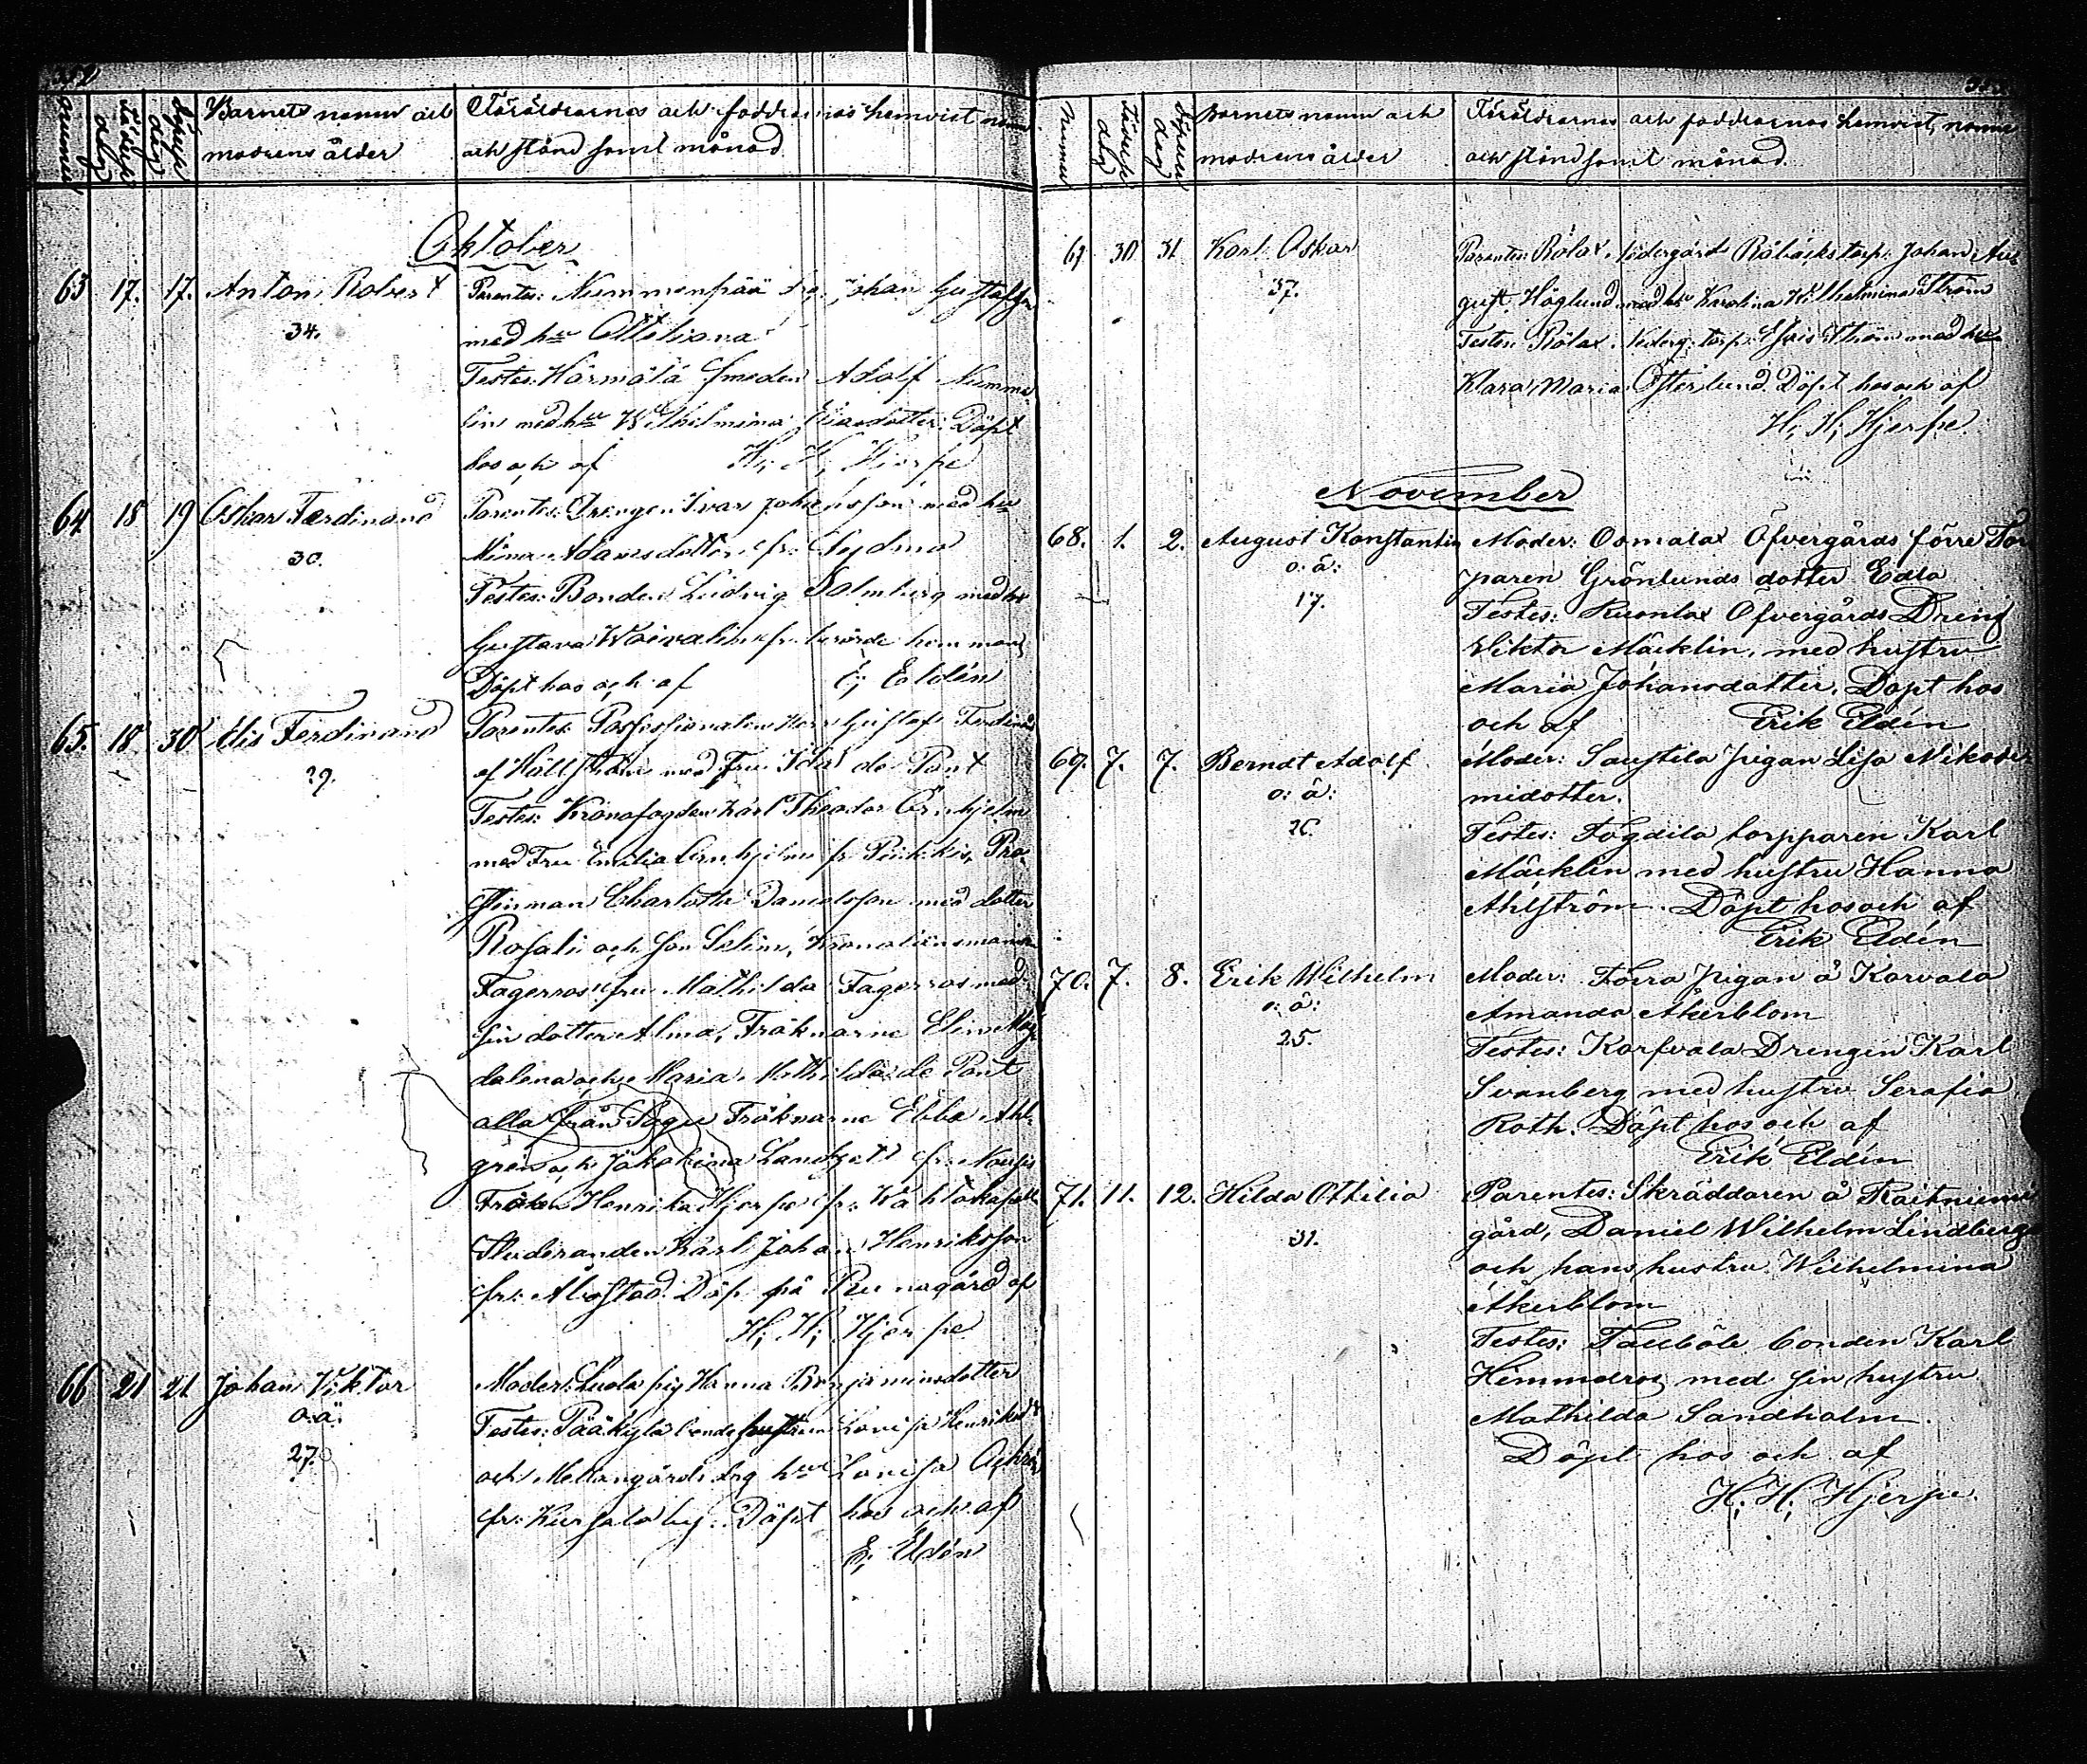 Barnets namn och
modrens ålder
Föräldrarnes och faddrarnas hemvist namn
och stånd samt månad
Oktober
63 17. 17. Anton Robert
34.
Parentes: Nummenpää Johan Gustafsson
med hu Ottiliana
Testes: Härmälä Smeden Adolf Numme
lin med hu Wilhelmina Eliaedotter. Döpt
hos och af H; H; Hjerpe
64 18 19 Oskar Ferdinand
30.
Parentes: Drengen Ivar Johansson med hu
Mina Adamsdotter fr.
Testes: Bonden Ludvig Salmberg med hu
Gustava fr. berörde hemman
Döpt hos och af E; Eldén
65. 18 30 Elis Ferdinand
29.
Parentes: Possessionaten Herr Gustaf Ferdinand
af Hällström med Fru Ida de Pont
Testes: Kronofogden Karl Theodor Örnhjelm
med Fru Emilia Örnhjelm fr. Pikkis, Pro
stinnan Charlotta Danielsson med dotter
Rosali och son Selim, Kronolänsmannen
Fagerroos fru Mathilda Fagerroos med
sin dotter Alma, Fröknarne Elin Mag
dalena och Maria Mathilda de Pont
alla från Sagu Fröknarne Ebba Ahl
gren och Jakobina Landzett fr. Nousis
Fröken Henrika Hjerpe fr.
Studeranden Karl Johan Henriksson
fr. Åbo stad. Döp. på gård af
H; H; Hjerpe
66 21 21 Johan Viktor
o.ä.
27.
Moder: pig Hanna Benjaminsdotter
Testes: Pääkylä bonde hustrun Lovisa
och Mellangårds drg hu Lovisa
fr. by. Döpt hos och af
E; Eldén
Nummer
Födelse dag
Döpelse dag
Barnets namn och
modrens ålder
Föräldrarnes och faddrarnas hemvist, namn
och stånd samt månad.
67 30 31 Karl Oskar
37.
Parentes: Rölax Nedergård torp. Johan Au
gust Höglund med hu Karolina Wilhelmina Ström
Testes: Rölax Nederg. torp. Thörn med hu
Klara Maria Österlund. Döpt hos och af
H; H; Hjerpe
November
68. 1. 2. August Konstantin
o: ä:
17.
Moder: Osmalax Öfvergårds förre Tor
paren Grönlunds dotter Edla
Testes: Ruonlax Öfvergårds Dreng
Viktor Mäcklin, med hustru
Maria Johansdotter. Döpt hos
och af Erik Eldén
69. 7. 7. Berndt Adolf
o: ä:
26.
Moder: Saustila pigan Lisa Nikode
midotter.
Testes: Fågdila torpparen Karl
Mäcklin med hustru Hanna
Ahlström. Döpt hos och af
Erik Eldén
70. 7. 8. Erik Wilhelm
o: ä:
25.
Moder: Förra pigan å Karvala
Amanda Åkerblom
Testes: Karfvala Drengen Karl
Svanberg med hustru Serafia
Roth. Döpt hos och af
Erik Eldén
71. 11. 12. Hilda Othilia
31.
Parentes: Skräddaren å Raitniemi
gård, Daniel Wilhelm Lindberg
och hans hustru Wilhelmina
Åkerblom
Testes: Tallböle bonden Karl
Himmelros med sin hustru
Mathilda Sandholm.
Döpt hos och af
H; H; Hjerpe.